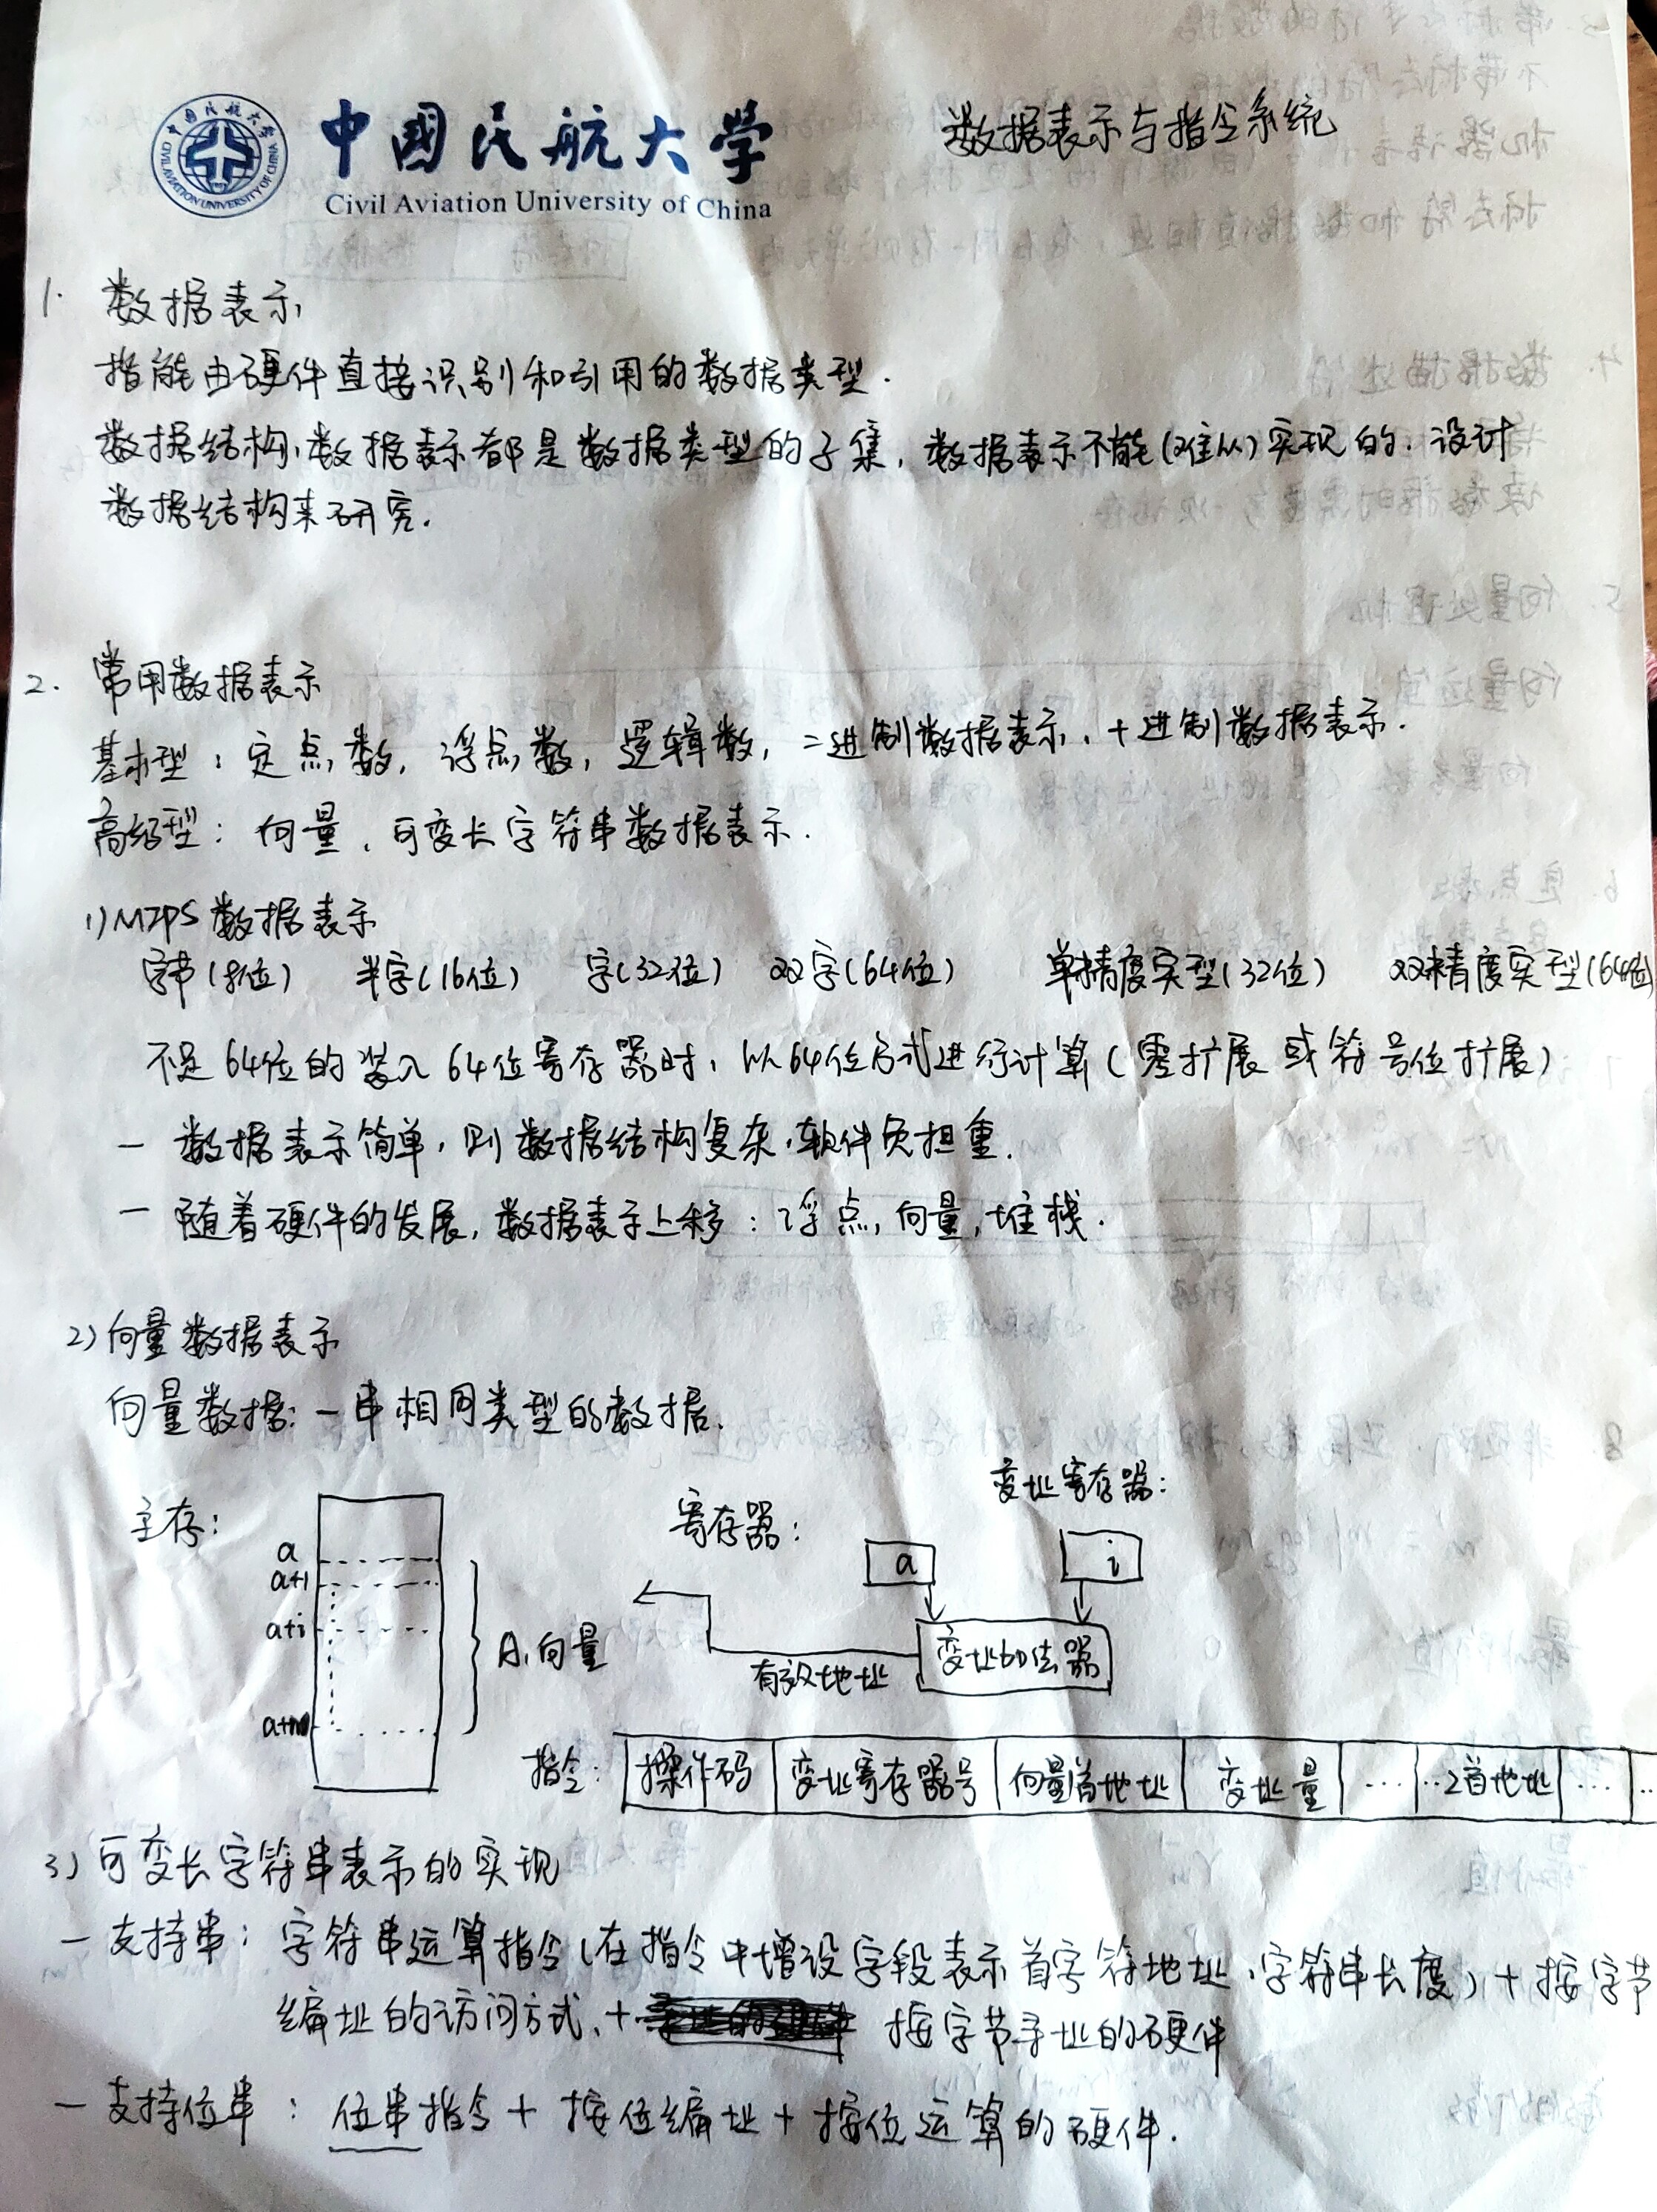 中國民航大学
Civil Aviation University of China
数据表示与指令系统
1. 数据表示
指能由硬件直接识别和引用的数据类型.
数据结构、数据表示都是数据类型的子集,数据表示不能(难以)实现的.设计
数据结构来研究.
2. 常用数据表示
基本型:定点数,浮点数,逻辑数,二进制数据表示、十进制数据表示.
高级型:向量、可变长字符串数据表示.
1) MIPS数据表示
字节(8位) 半字(16位) 字(32位) 双字(64位) 单精度实型(32位) 双精度实型(64位)
不足64位的装入64位寄存器时,以64位方式进行计算(零扩展或符号位扩展)
— 数据表示简单,则数据结构复杂,软件负担重.
— 随着硬件的发展,数据表示上移:浮点,向量,堆栈.
2) 向量数据表示
向量数据:一串相同类型的数据.
主存:
a
a+1
a+i
A.向量
寄存器:
变址寄存器:
a
i
变址加法器
有效地址
指令: 操作码 变址寄存器号 向量首地址 变址量 … ..2首地址 … ..
3) 可变长字符串表示的实现
— 支持串:字符串运算指令(在指令中增设字段表示首字符地址、字符串长度)+按字节
编址的访问方式、+ 按字节寻址的硬件
— 支持位串:位串指令+按位编址+按位运算的硬件.